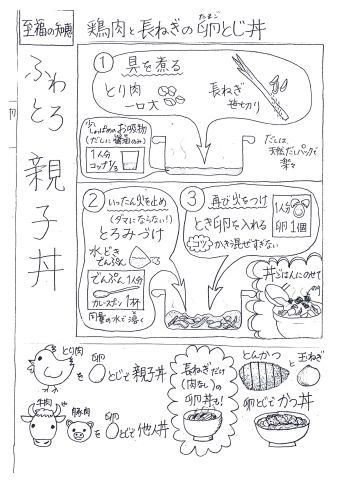 至福の知恵
ふわとろ 親子丼
鶏肉と長ねぎの卵とじ丼
たまご
① 具を煮る
とり肉
一口大
長ねぎ
笹切り
少ししょっぱめのお吸物
(だしに醤油のみ)
1人分
コップ1/3
だしは、
天然だしパックで
楽々
② いったん火を止め
(ダマにならない!)
とろみづけ
水どき
でんぷん
でんぷん1人分
カレースプーン1杯
同量の水で溶く
③ 再び火をつけ
とき卵を入れる
コツ かき混ぜすぎない
1人分
卵1個
丼ごはんにのせて
とり肉
を 卵 とじで親子丼
牛肉
豚肉
を 卵 とじで他人丼
長ねぎだけ
(肉なし)の
卵丼も!
とんかつ
と玉ねぎ
卵とじでかつ丼